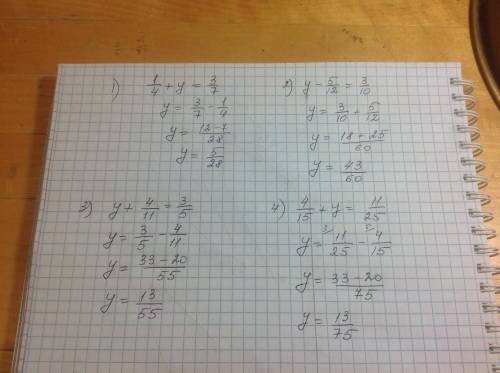 1) 1/4 + y = 3/7
y = 3/7 - 1/4
y = (12-7)/28
y = 5/28
2) y - 5/12 = 3/10
y = 3/10 + 5/12
y = (18+25)/60
y = 43/60
3) y + 4/11 = 3/5
y = 3/5 - 4/11
y = (33-20)/55
y = 13/55
4) 4/15 + y = 11/25
y = 11/25 - 4/15
y = (33-20)/75
y = 13/75